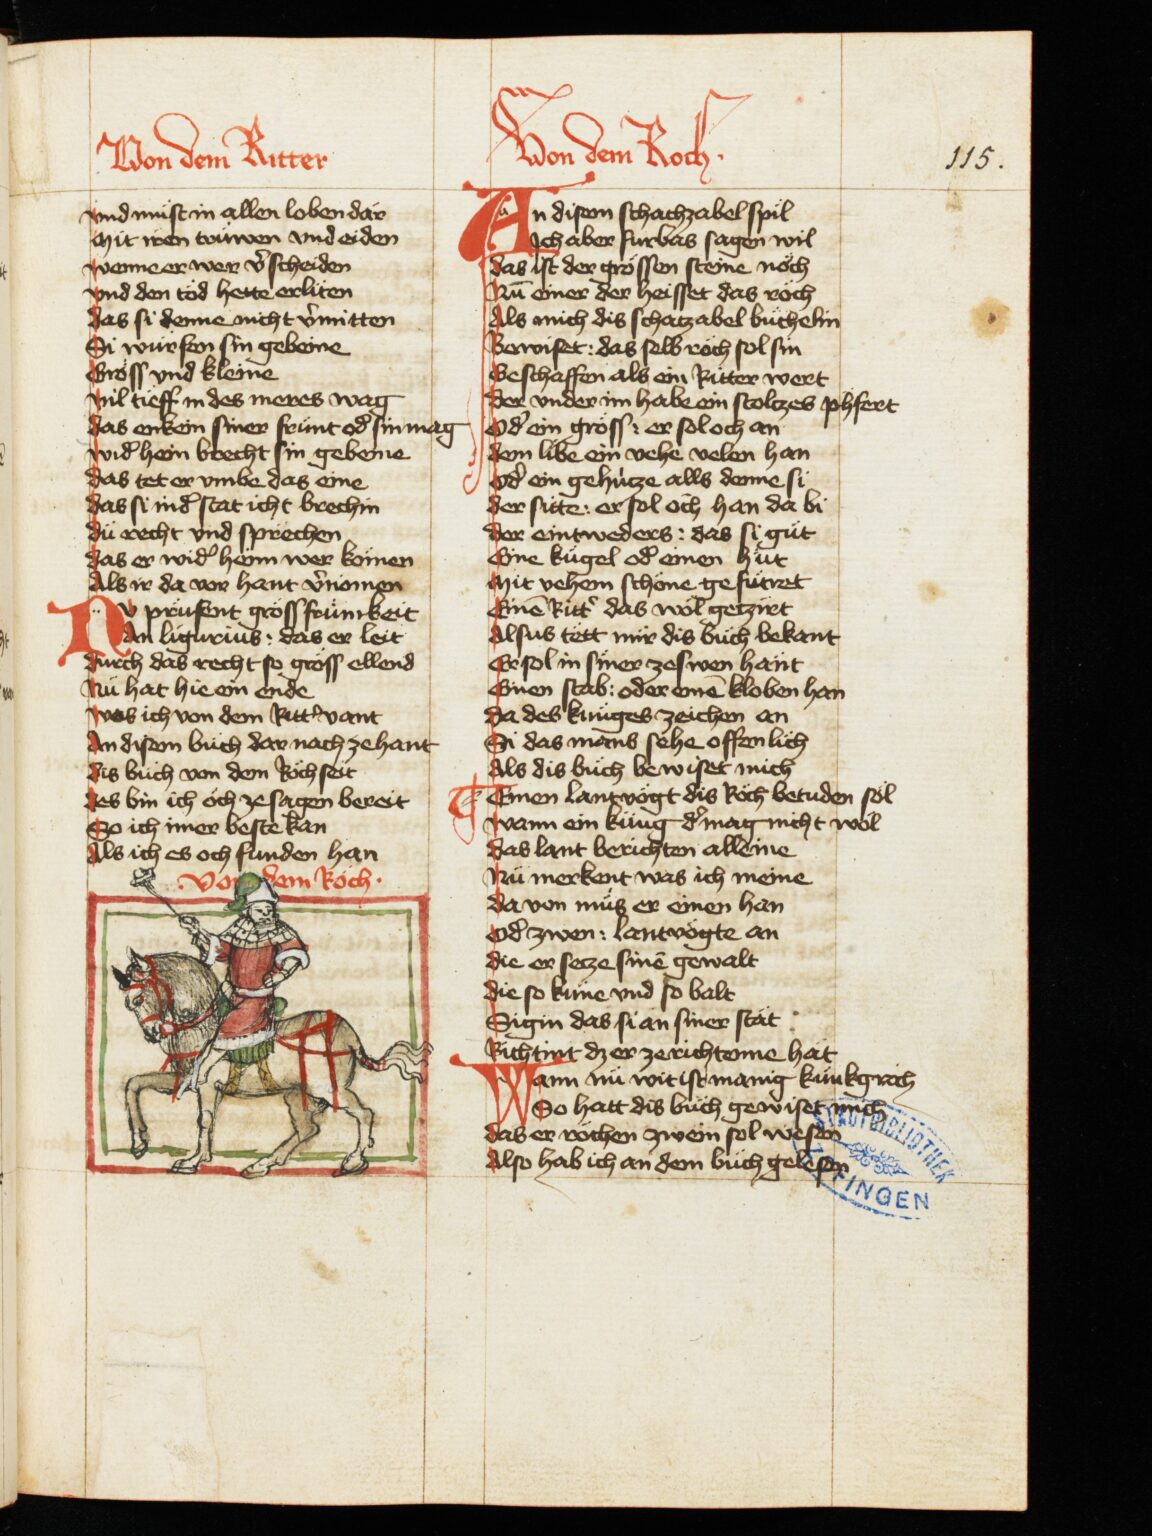 Von dem Ritter
vnd muͦst in allen loben dar
Mit iren trüwen vnd eiden
wenne er wer v̾scheiden
vnd den tod hette erliten
das si denne nicht v̾mitten
Si würfen sin gebeine
Gröss vnd kleine
vil tieff in des meres wag
das enkein siner frünt od̾ sin mag
wid̾ hein brecht sin gebeine
das tet er vmbe das eine
das si ind̾ stat icht brechin
dü recht vnd sprechen
das er wid̾ heim wer komen
Als ir da vor hant v̾nomen
Nv prüfent gröss frümkeit
An ligurius : das er leit
durch das recht so gröss ellend
Nü hat hie ein ende
was ich von dem Ritt̾ vant
An disem buͦch dar nach ze hant
dis buͦch von dem Röch seit
des bin ich öch ze sagen bereit
So ich imer beste kan
Als ich es och funden han
Von dem Röch .
Von dem Roch .
115.
An disem schachzabel spil
Ich aber fürbas sagen wil
das ist der grössen steine noch
Nū einer der heisset das röch
Als mich dis schatzabel büchelin
Bewiset : das selb röch sol sin
Geschaffen als ein Ritter wert
der vnder im habe ein stoltzes phfert
Od̾ ein gröss : er sol och an
dem libe ein vehe velen han
Od̾ ein gehütze alls denne si
der sitte : er sol öch han da bi
der eintweders : das si guͦt
Eine kügel od̾ einen huͦt
Mit vehem schöne gefütret
Einē Ritt̾ das wol gezirt
Alsus tett mir dis buͦch bekant
Er sol in siner zeswen hant
Einen stab : oder einē kloben han
da des küniges zeichen an
Si das mans sehe offenlich
Als dis buͦch bewiset mich
Einen lantvögt dis Röch betuden sol
wann ein künig d̾ mag nicht wol
das lant berichten alleine
Nü merkent was ich meine
da von muͦs er einen han
Od̾ zwen : lantvögte an
die er setze sinē gewalt
die so küne vnd so balt
Sigin das si an siner stat
Richtint dz er ze richtenne hat
Wann nü wit ist manig künkgrich
So hatt dis buͦch gewiset mich
das er röchen zwein sol wesen
Also hab ich an dem buͦch gelesen
STADTBIBLIOTHEK
ZOFINGEN